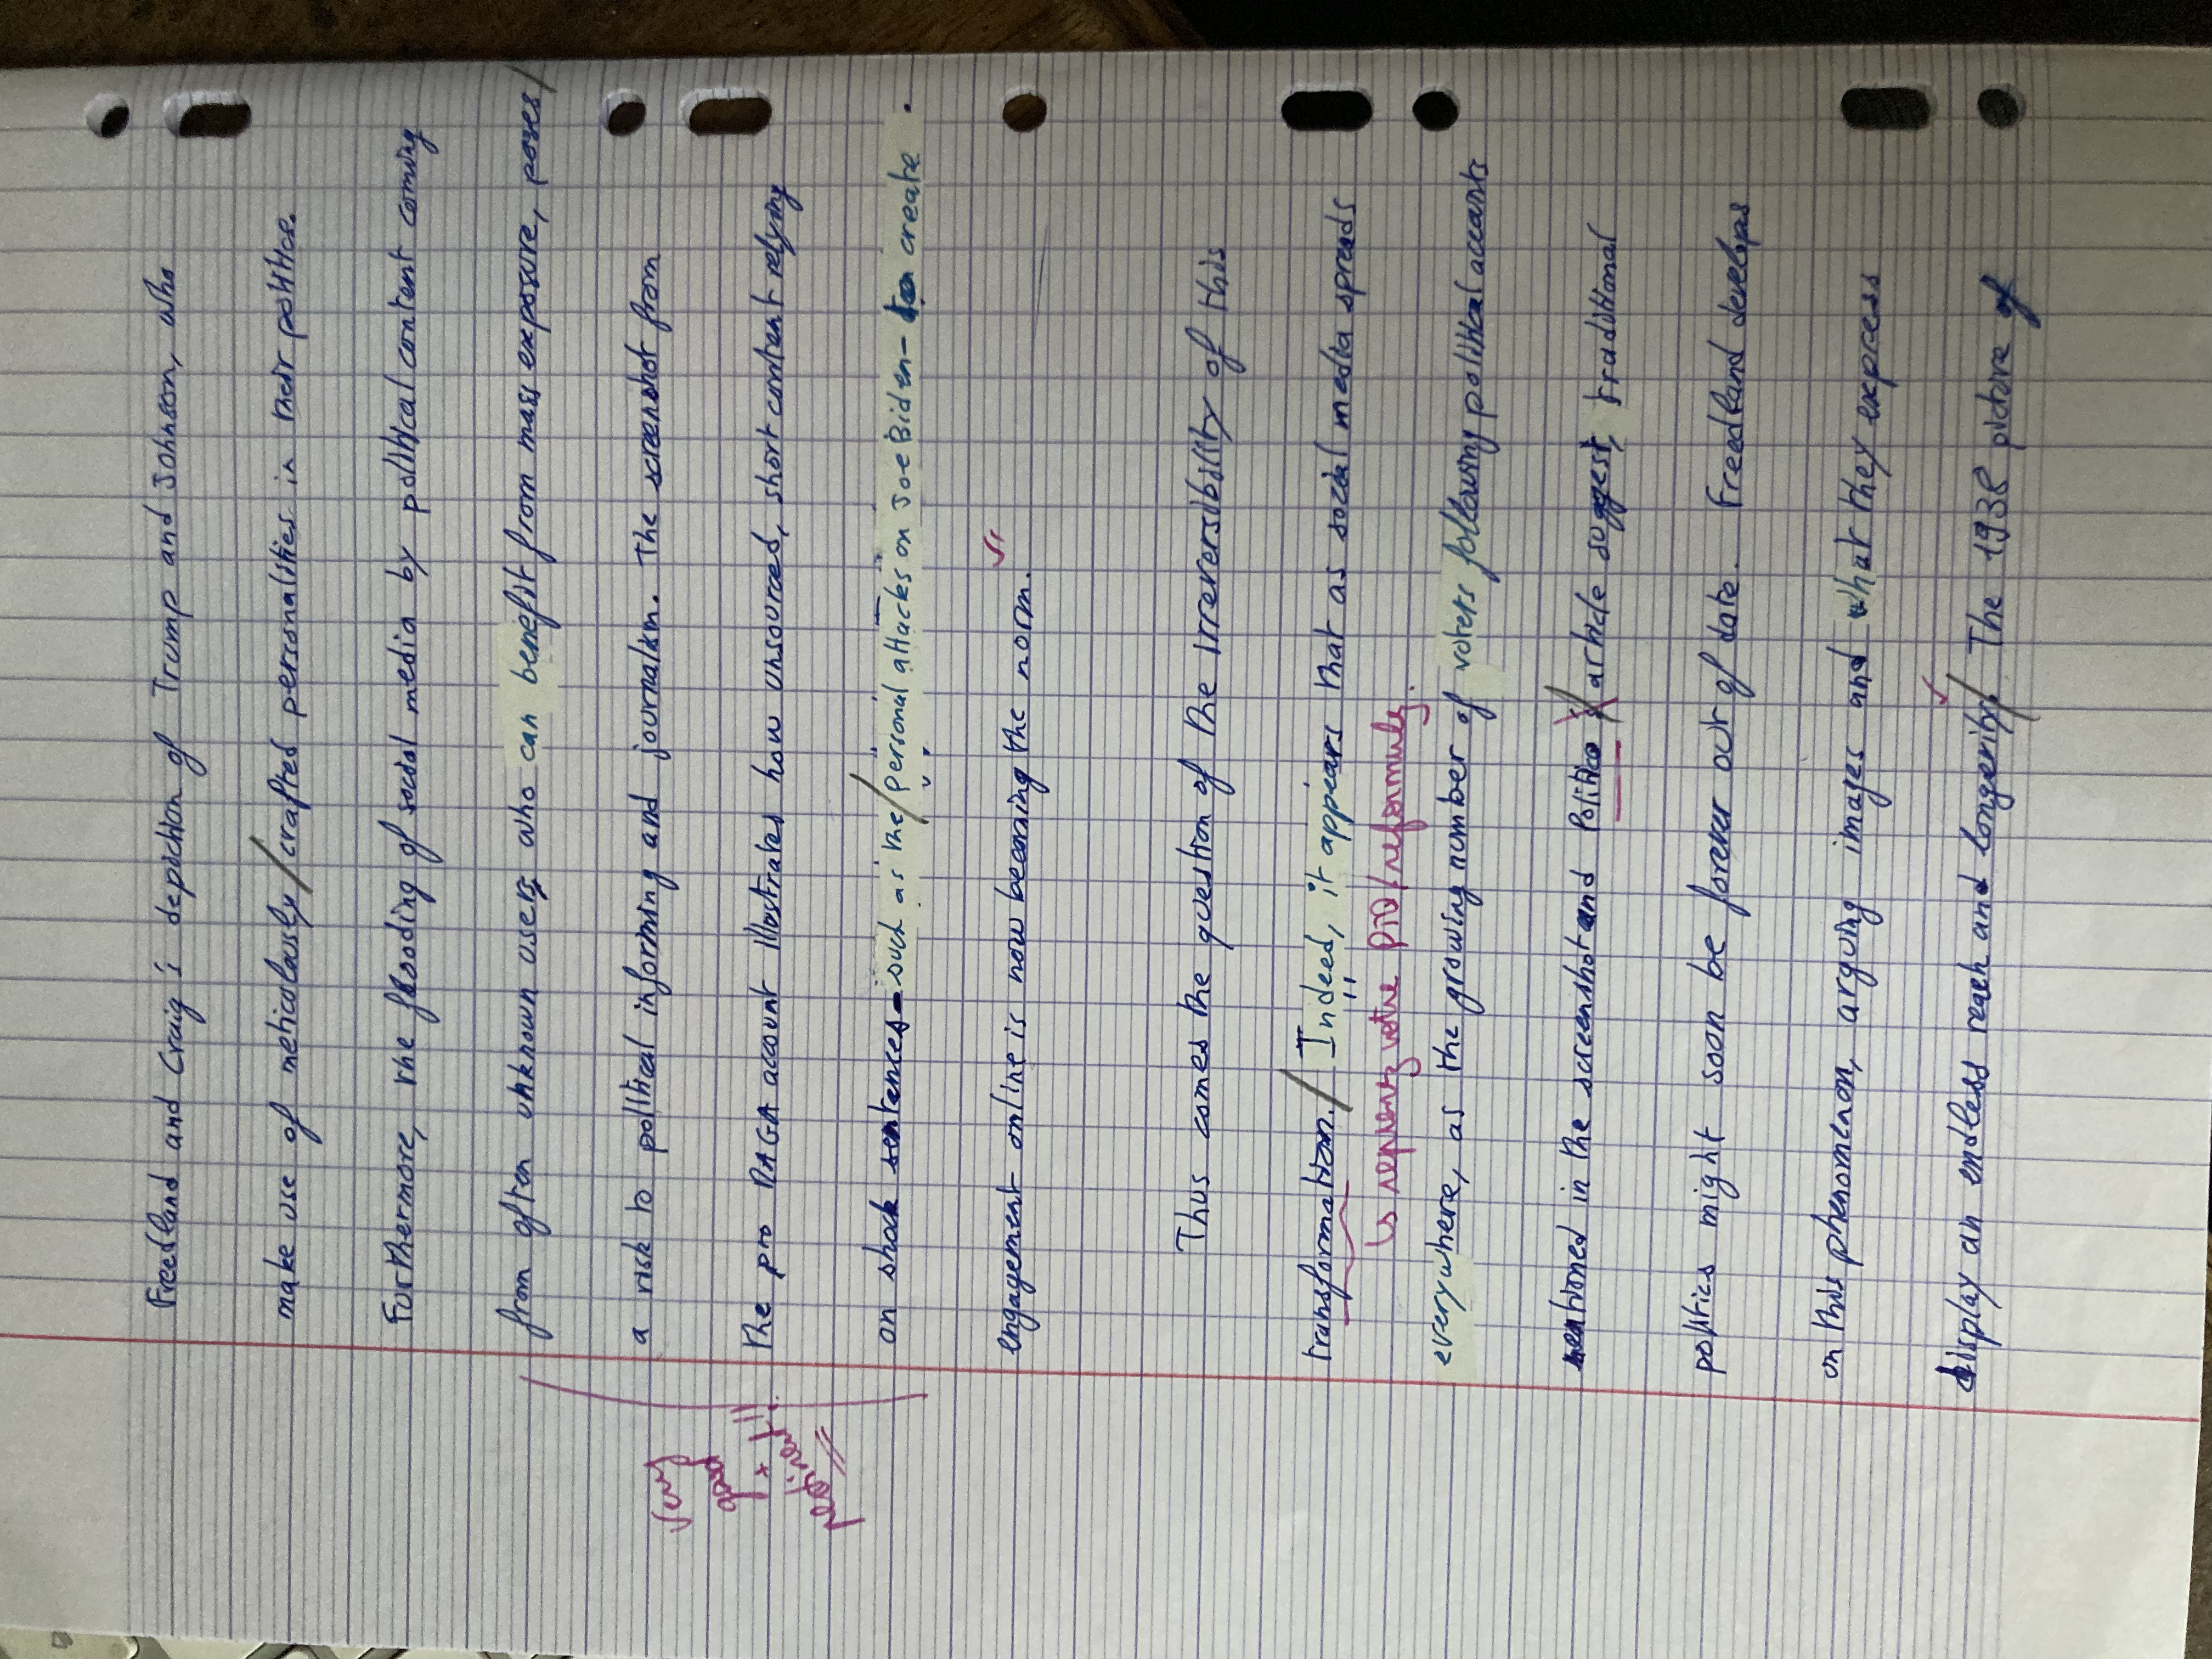 Freedland and Craig's depiction of Trump and Johnson, who
make use of meticolously / crafted personalities in their politics.
Furthermore, the flooding of social media by political content coming
from often unknown users who can benefit from mass exposure, poses /
a risk to political informing and journalism. The screenshot from
the pro MAGA account illustrates how unsourced, short content relying
very good
on shock sentences - such as the / personal attacks on Joe Biden - create
engagement online is now becoming the norm.
Thus comes the question of the irreversibility of this
transformation. / Indeed, it appears that as social media spreads
↳ reprenez votre pb / reformulez.
everywhere, as the growing number of voters following political accounts
mentioned in the screenshot and Politico / article suggest, traditional
politics might soon be forever out of date. Freedland develops
on this phenomenon, arguing images and what they express
display an endless reach and longevity. / The 1938 picture of